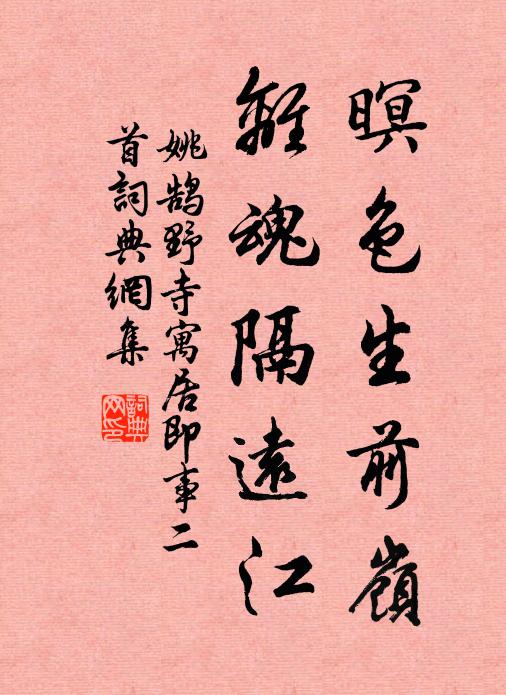 暝色生前嶺
離魂隔遠江
姚鵠野寺寓居即事二
首詞典網集
詞典
网印